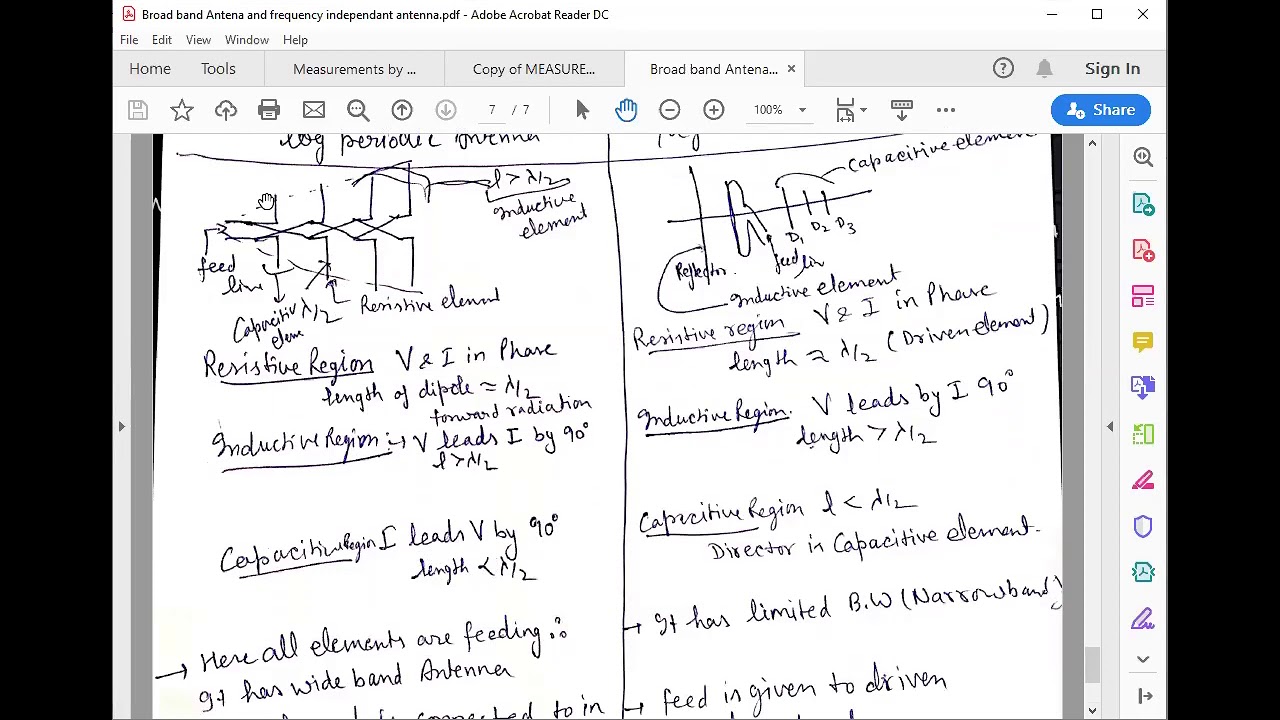 Broad band Antena and frequency independant antenna.pdf - Adobe Acrobat Reader DC
File Edit View Window Help
Home Tools Measurements by ... Copy of MEASURE... Broad band Antena... × Sign In
7 / 7 100% Share
log periodic Antenna
l > λ/2
Inductive element
feed line
Capacitiv elem
λ/2
Resistive element
Resistive Region V & I in Phase
length of dipole ≈ λ/2
forward radiation
Inductive Region :→ V leads I by 90°
l > λ/2
Capacitive Region I leads V by 90°
length < λ/2
→ Here all elements are feeding ∴
It has wide band Antenna
connected to in
Capacitive element
D1 D2 D3
Reflector
feed lin
Inductive element
Resistive region V & I in Phase
length ≈ λ/2 (Driven element)
Inductive Region. V leads by I 90°
length > λ/2
Capacitive Region l < λ/2
Director in Capacitive element.
→ It has limited B.W (Narrowband)
→ feed is given to driven